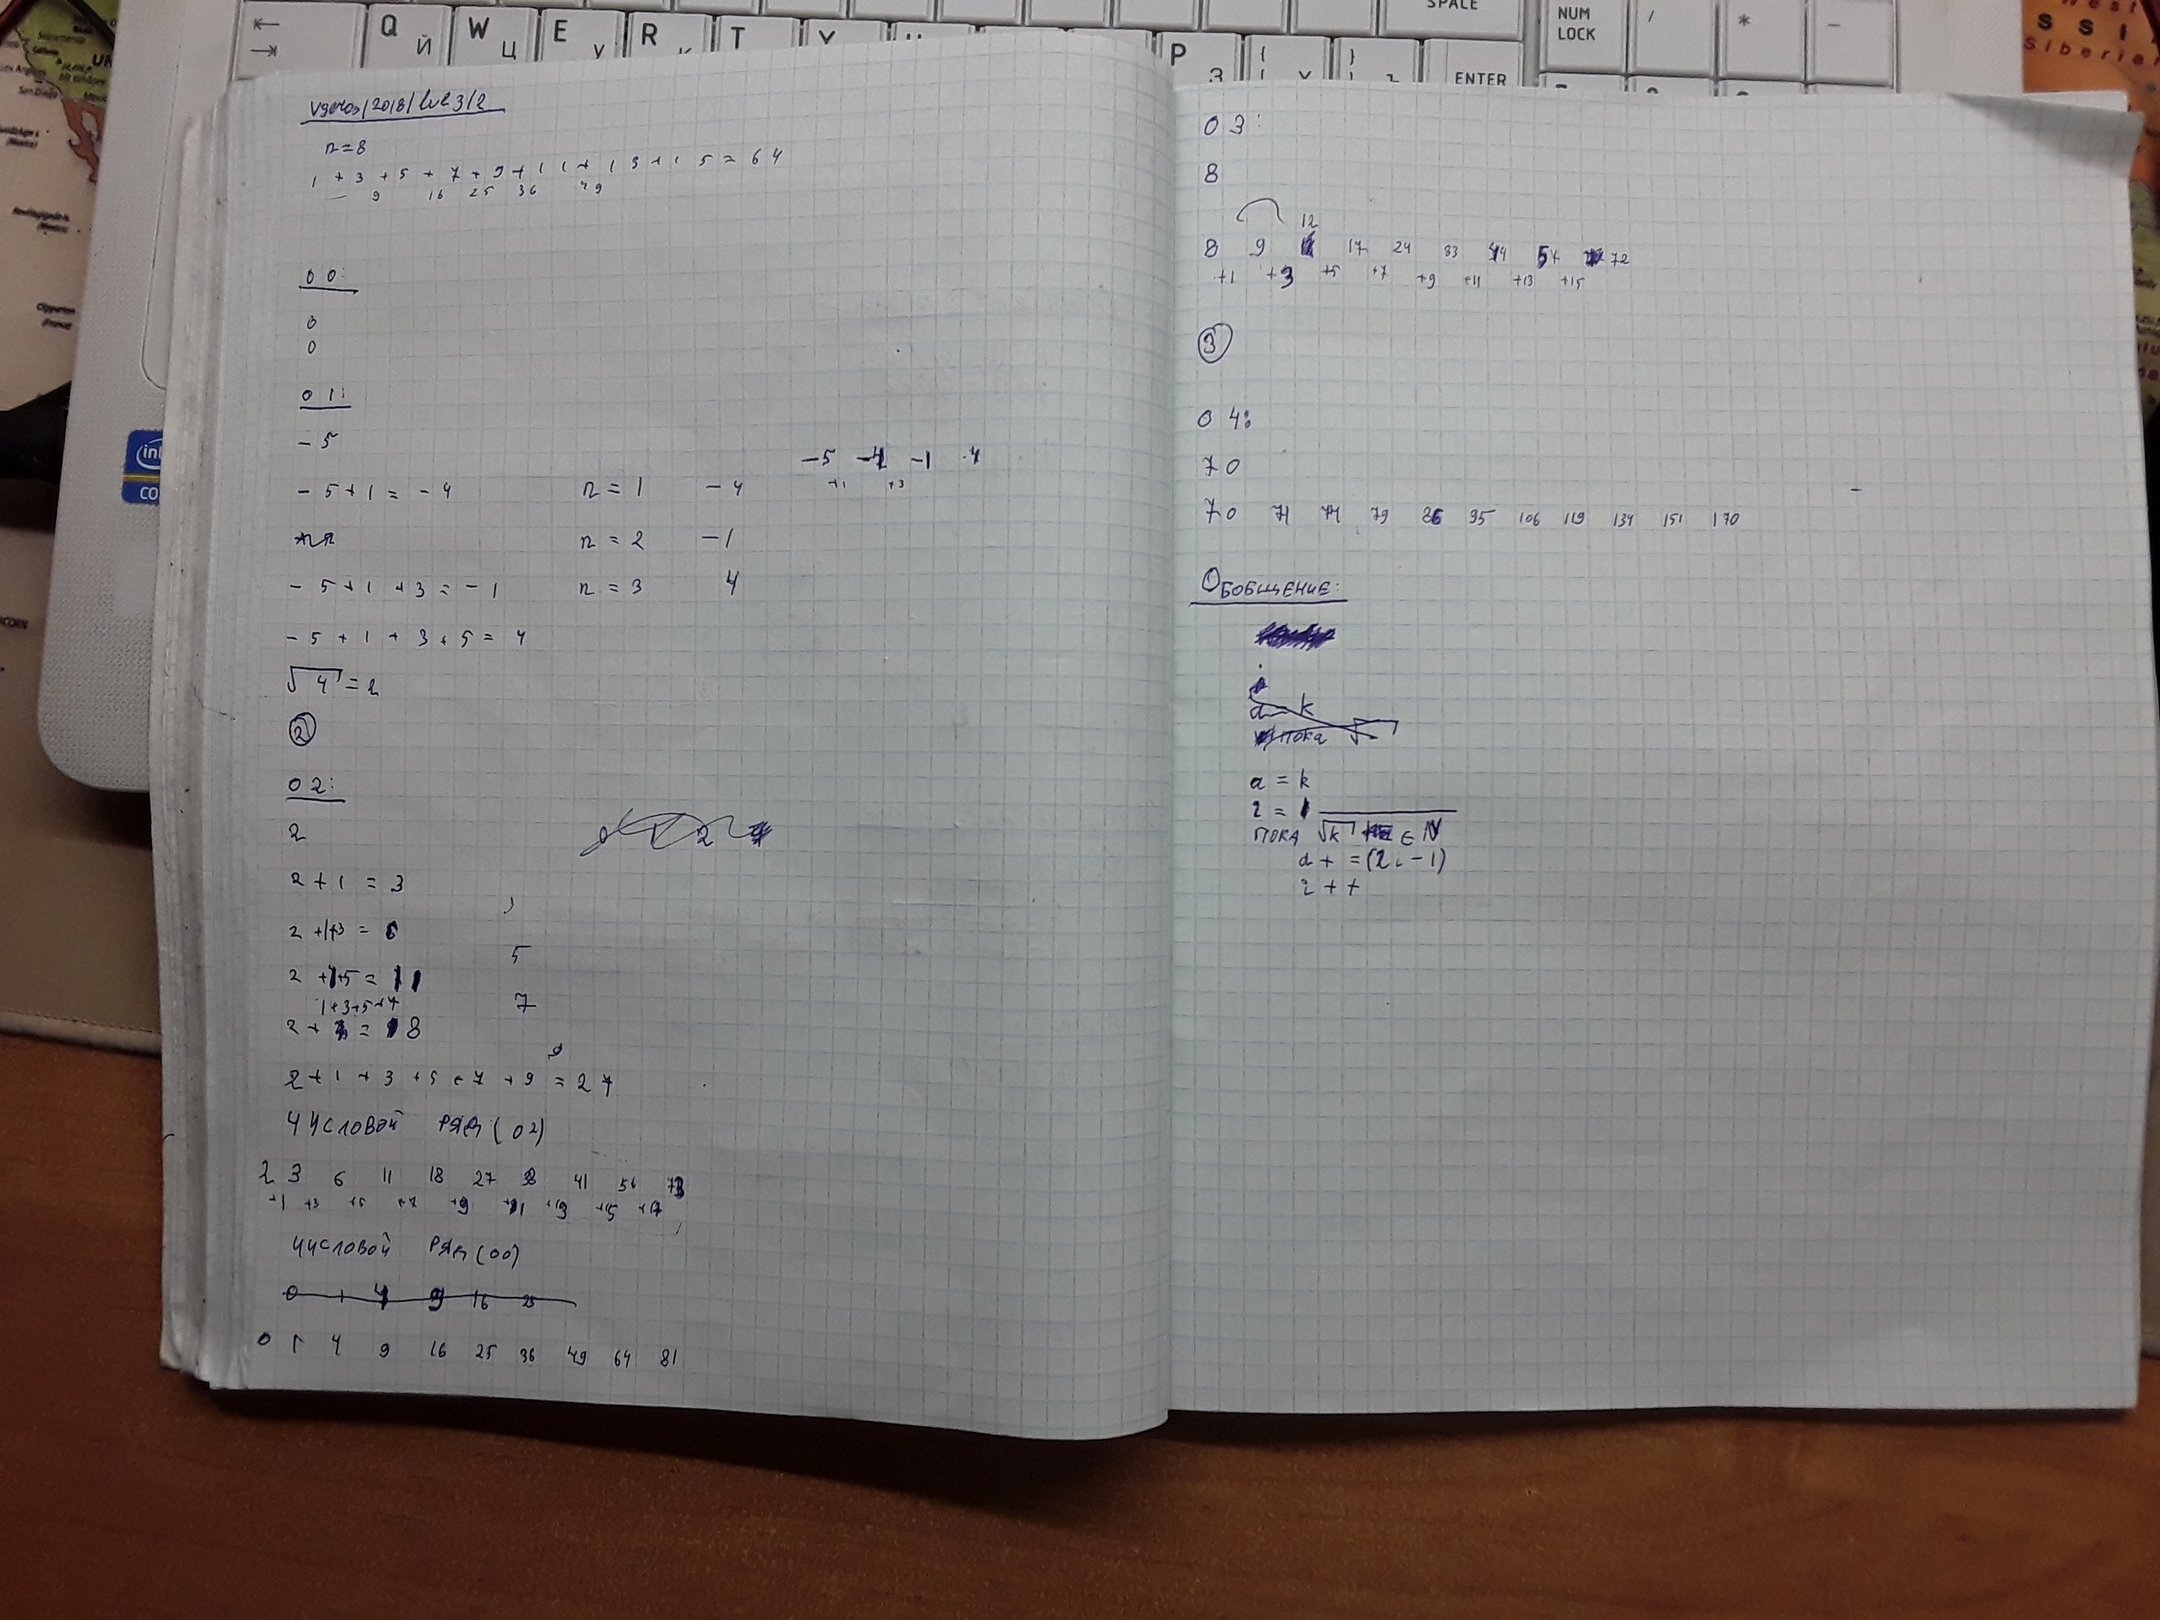 Q Й W Ц E У R К T
P З ENTER
SPACE
NUM LOCK / * −
n=8
1 + 3 + 5 + 7 + 9 + 1 1 + 1 3 + 1 5 = 6 4
9 16 25 36 49
0 0:
0
0
0 1:
- 5
- 5 + 1 = - 4 n = 1 - 4
-5 -4 -1 4
+1 +3
n = 2 - 1
- 5 + 1 + 3 = - 1 n = 3 4
- 5 + 1 + 3 + 5 = 4
√4 = 2
2
0 2:
2
2 + 1 = 3
2 +1+3 = 6
5
2 +1+5 = 11
1+3+5+7 7
2 + = 18
9
2 + 1 + 3 + 5 + 7 + 9 = 2 7
ЧИСЛОВОЙ РЯД (02)
2 3 6 11 18 27 38 41 56 73
+1 +3 +5 +7 +9 +11 +13 +15 +17
ЧИСЛОВОЙ РЯД (00)
0 1 4 9 16 25
0 1 4 9 16 25 36 49 64 81
0 3:
8
12
8 9 17 24 33 44 57 72
+1 +3 +5 +7 +9 +11 +13 +15
3
0 4:
7 0
7 0 71 74 79 86 95 106 119 134 151 170
ОБОБЩЕНИЕ:
a = k
пока √
a = k
i = 1
ПОКА √k ∈ N
a + = (2i - 1)
i + +